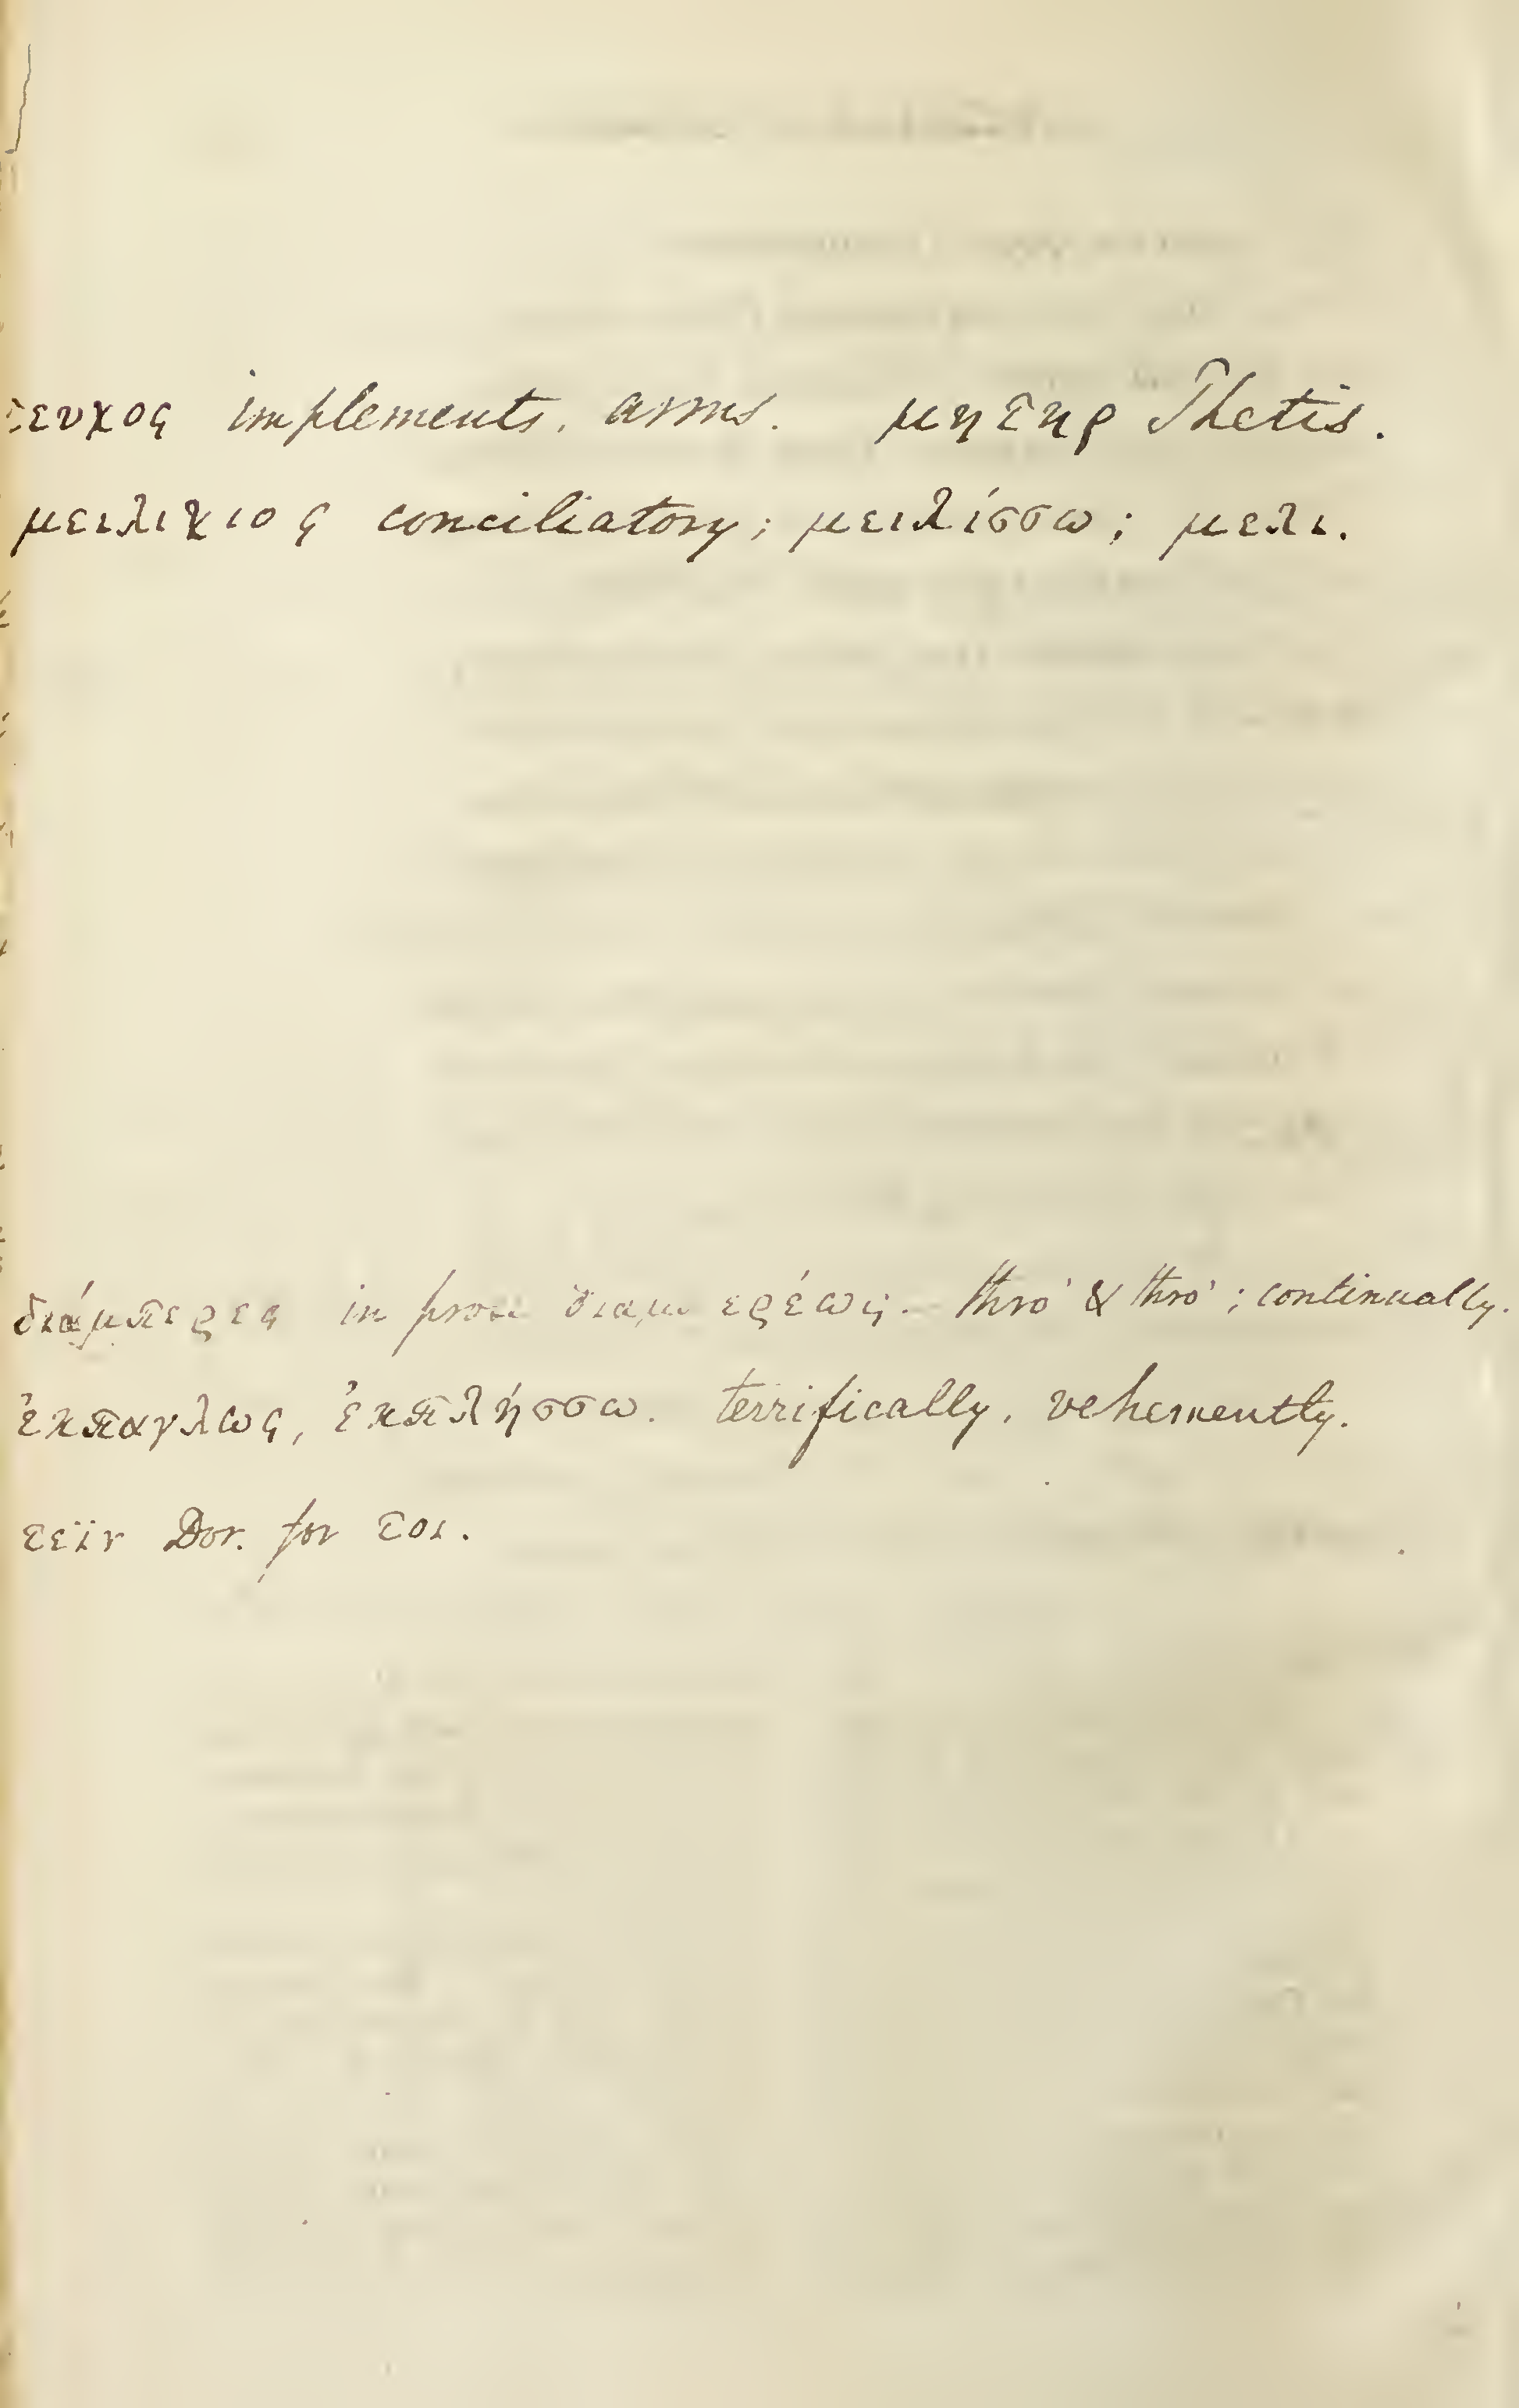 τευχος implements, arms. μητηρ Thetis.
μειλιχιος conciliatory; μειλίσσω; μελι.
διάμπερες in prose διαμπερέως. thro' & thro'; continually.
ἐκπαγλως, ἐκπλήσσω. terrifically, vehemently.
τεϊν Dor. for τοι.